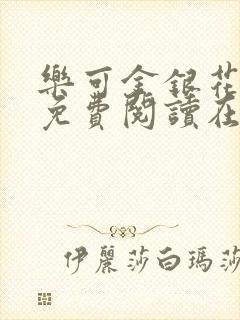 樂可金銀花
免費閱讀在
伊麗莎白瑪莎